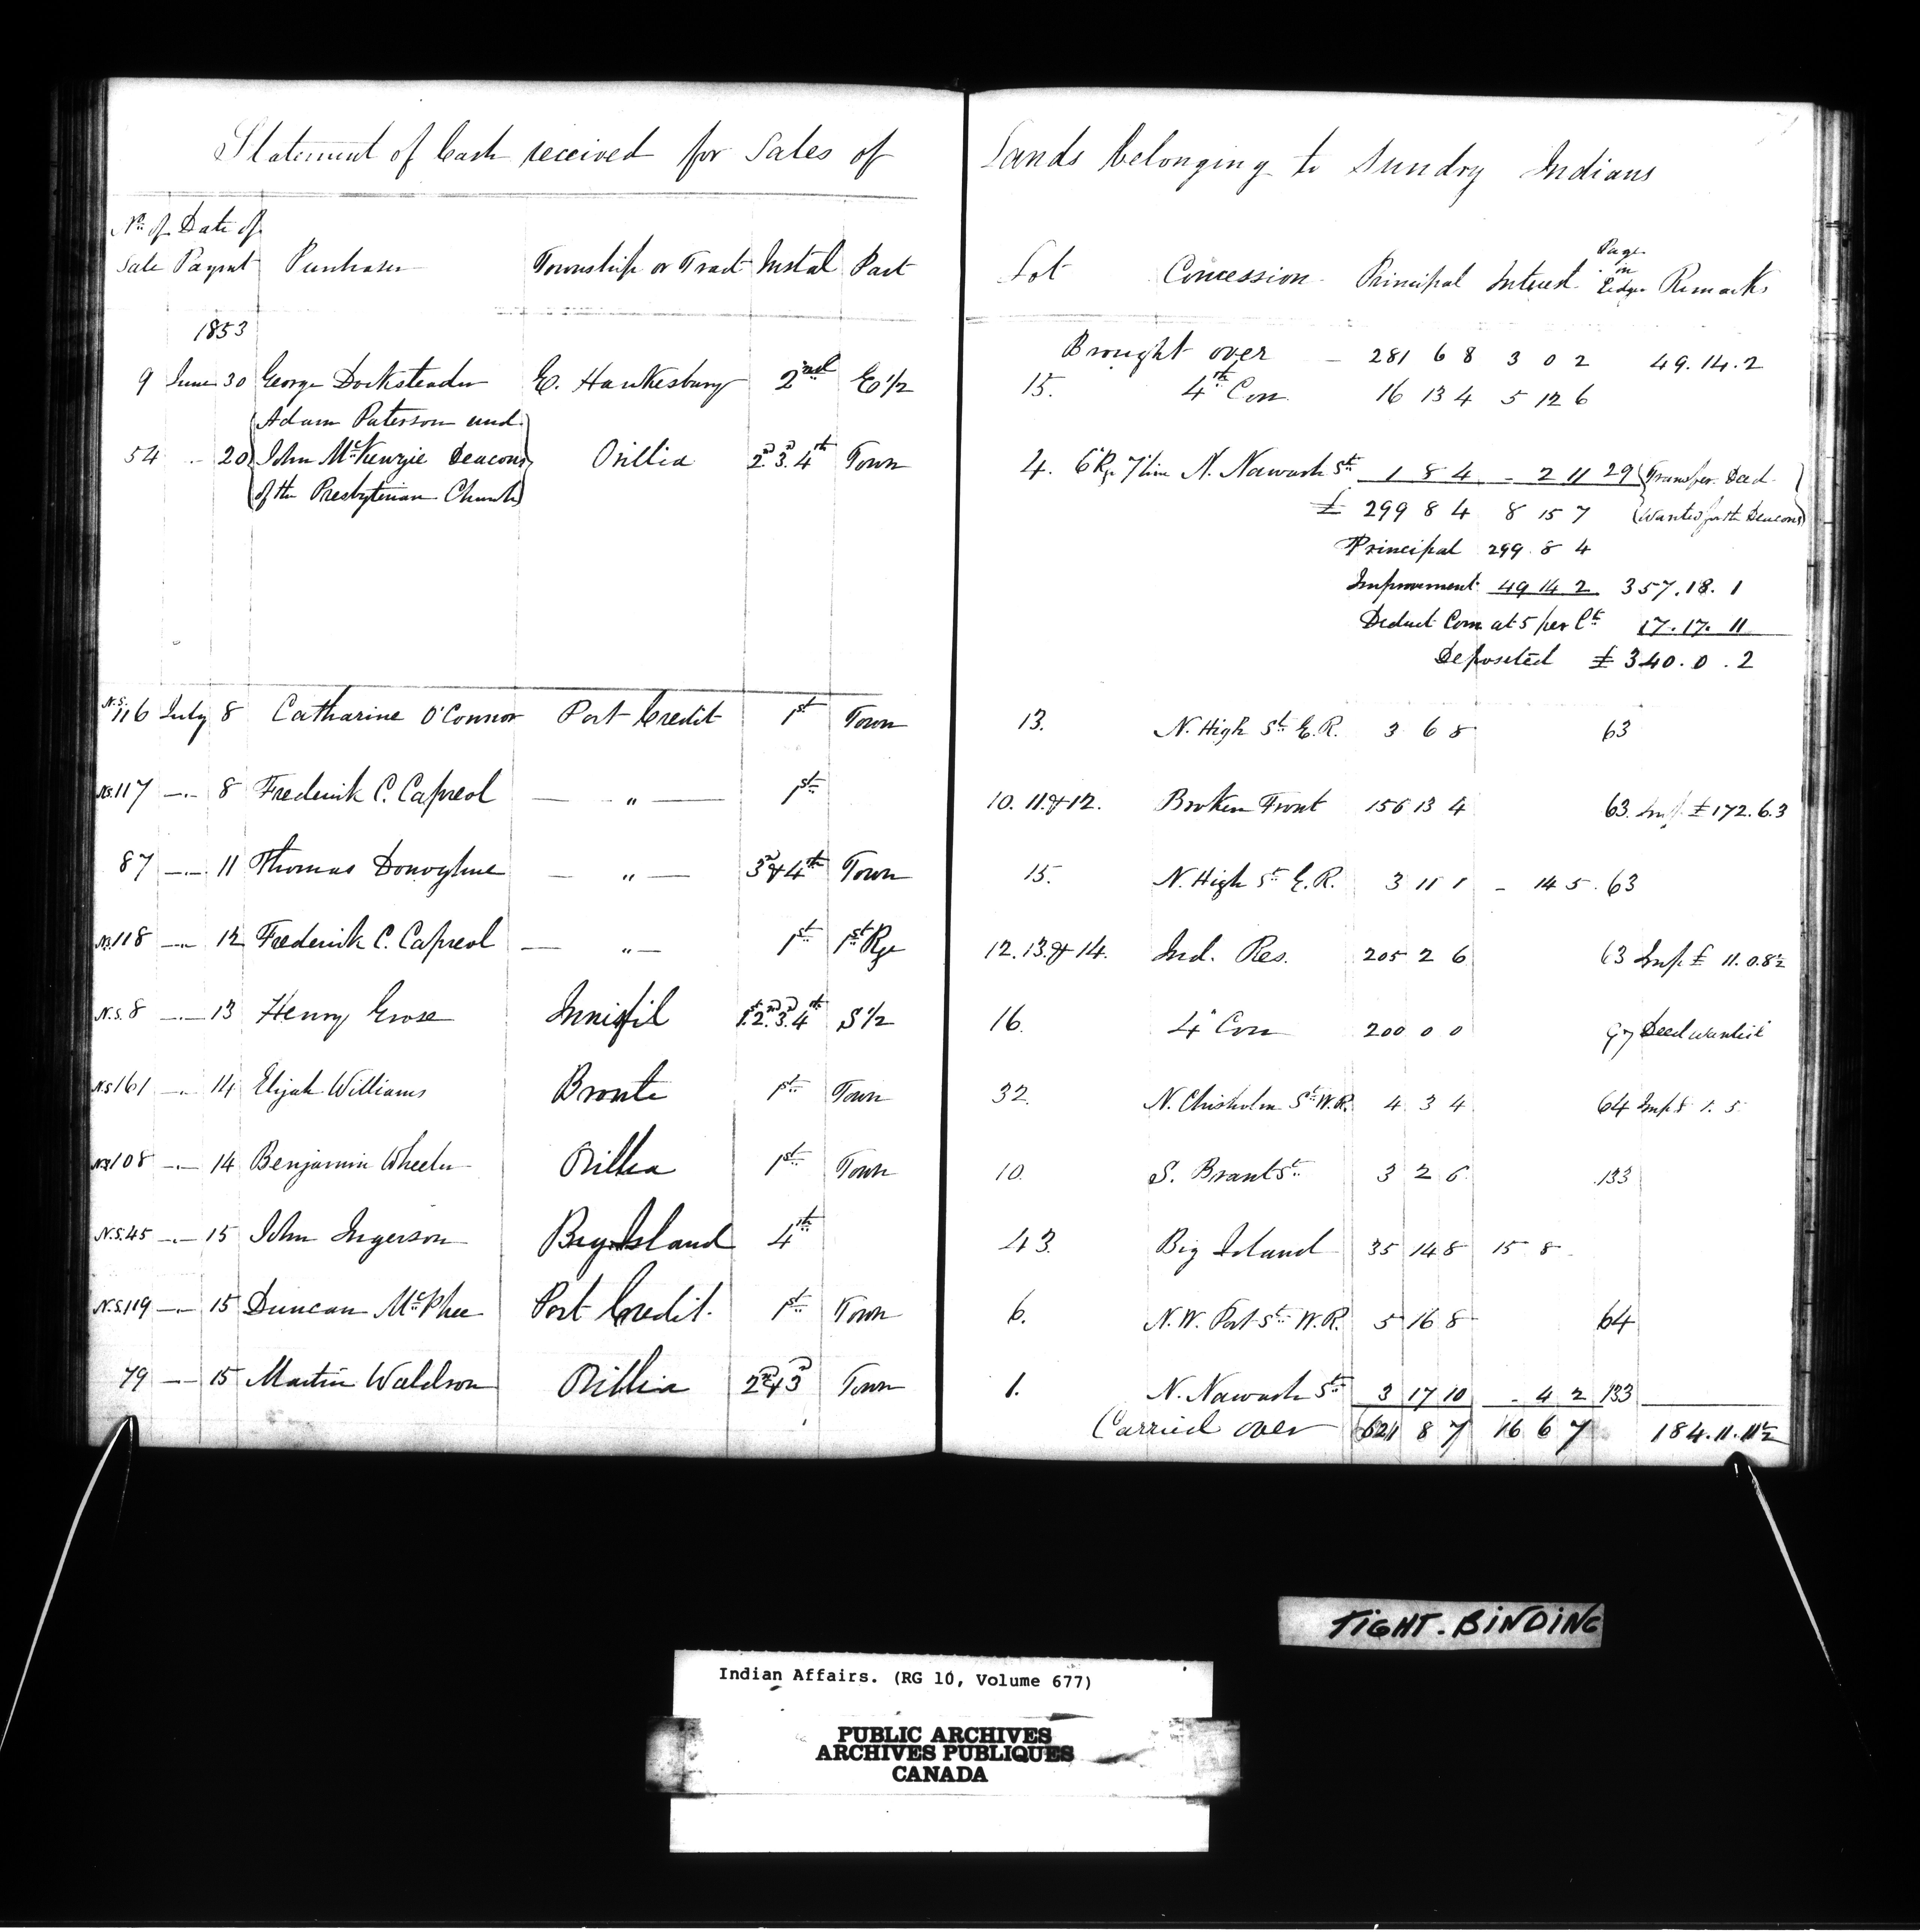 Statement of Cash received for Sales of Lands belonging to Sundry Indians
No. of Sale Date of Paymt Purchaser Township or Tract Instal Part Lot Concession Principal Interest Page in Ledger Remarks
1853
Brought over — 281 6 8 3 0 2 49.14.2
9 June 30 George Docksteader E. Hawkesbury 2nd E 1/2 15. 4th Con 16 13 4 5 12 6
Adam Paterson and
54 " 20 John McKenzie Deacons Orillia 2d. 3d. 4th Town 4. 6 Rge 7 line N. Nawash St. 1 8 4 - 2 11 29 Transfer Deed
of the Presbyterian Church £ 299 8 4 8 15 7 Wanted for the Deacons
Principal 299 8 4
Improvement 49 14 2 357.18.1
Deduct Com at 5 per Ct 17.17.11
Deposited £ 340.0.2
N.S. 116 July 8 Catharine O'Connor Port Credit 1st Town 13. N. High St. E.R. 3 6 8 63
N.S. 117 —"— 8 Frederick C. Capreol — " — 1st 10. 11. & 12. Broken Front 156 13 4 63. Imp. £172.6.3
87 —"— 11 Thomas Donoghue — " — 3d & 4th Town 15. N. High St. E.R. 3 11 1 - 14 5 63
N.S. 118 —"— 12 Frederick C. Capreol — " — 1st 1st Rge 12. 13. & 14. Ind. Res. 205 2 6 63 Imp. £ 11.0.8½
N.S. 8 —"— 13 Henry Grose Innisfil 1st. 2d. 3d. 4th S 1/2 16. 4" Con 200 0 0 97 Deed wanted
N.S. 161 —"— 14 Elijah Williams Bronte 1st Town 32. N. Chisholm St. W.R. 4 3 4 64 Imp. 1. 5
N.S. 108 —"— 14 Benjamin Wheeler Orillia 1st Town 10. S. Brant St. 3 2 6 133
N.S. 45 —"— 15 John Ingerson Big Island 4th 43. Big Island 35 14 8 15 8
N.S. 119 —"— 15 Duncan McPhee Port Credit. 1st Town 6. N.W. Port St. W.R. 5 16 8 64
79 —"— 15 Martin Waldron Orillia 2d & 3d Town 1. N. Nawash St. 3 17 10 - 4 2 133
Carried over 621 8 7 16 6 7 184.11.11½
TIGHT. BINDING
Indian Affairs. (RG 10, Volume 677)
PUBLIC ARCHIVES
ARCHIVES PUBLIQUES
CANADA